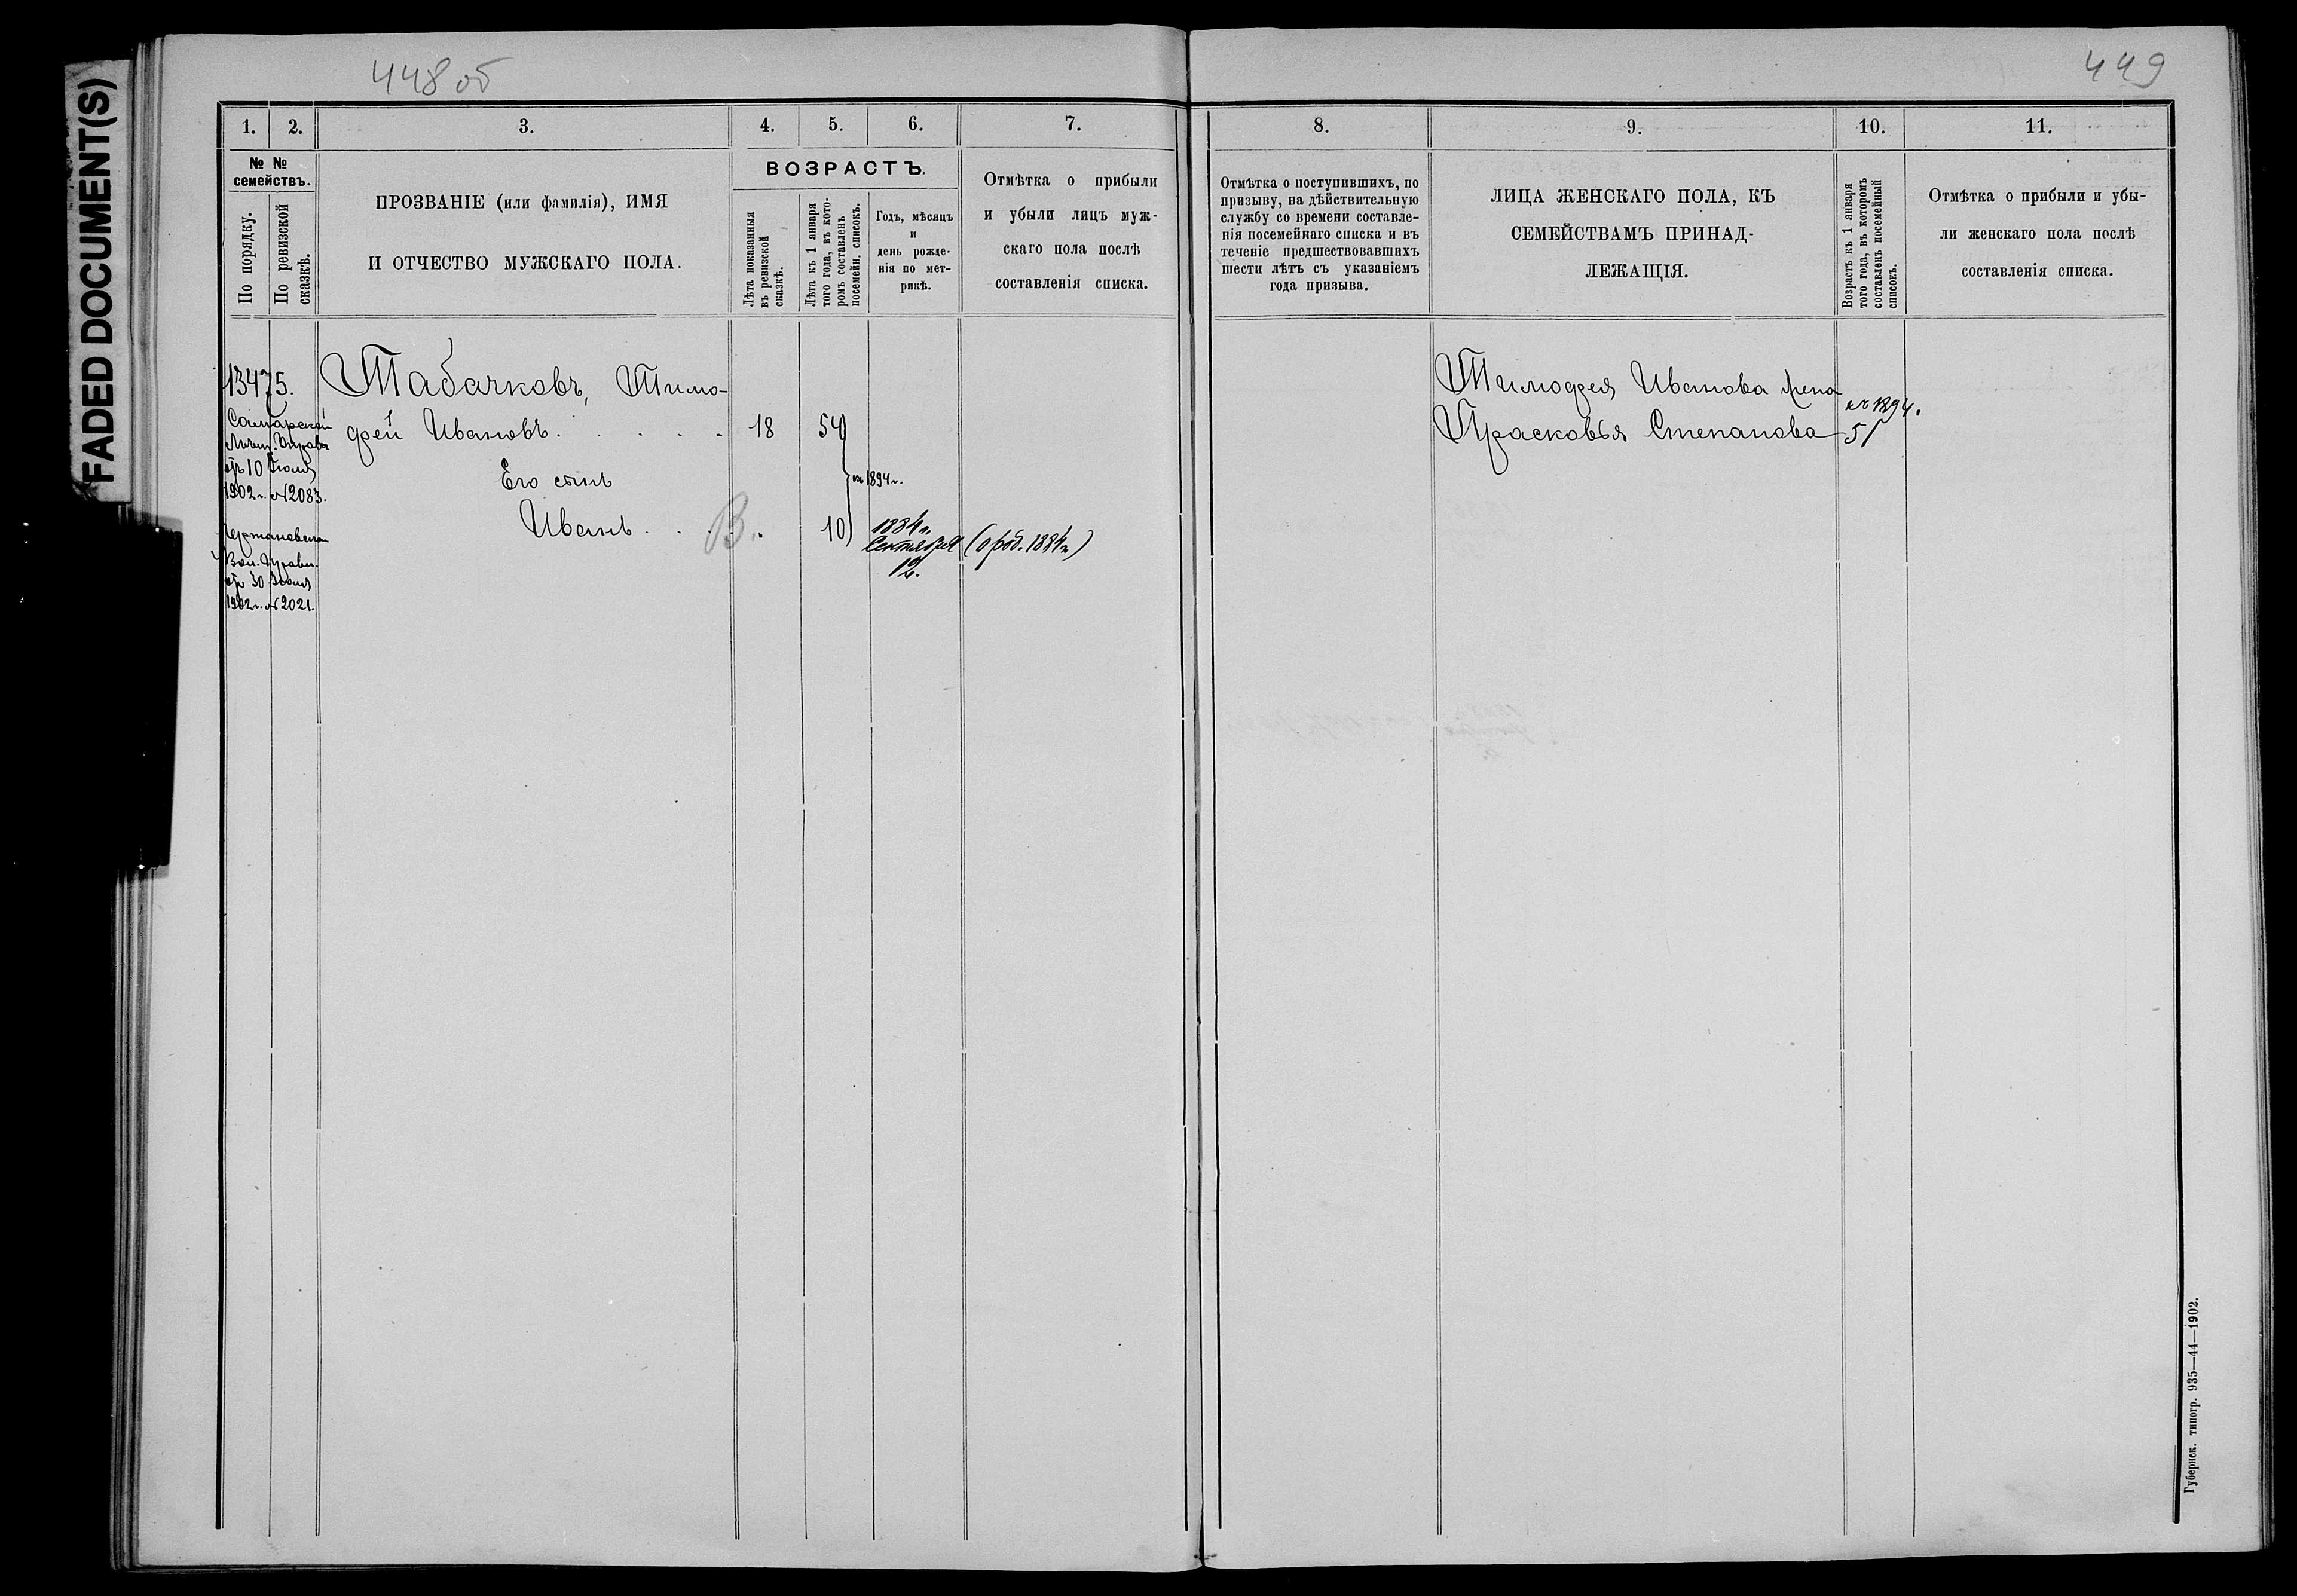 FADED DOCUMENT(S)
448 об
449
1. 2. 3. 4. 5. 6. 7.
№ № семействъ.
По порядку.
По ревизской сказкѣ.
ПРОЗВАНІЕ (или фамилія), ИМЯ
И ОТЧЕСТВО МУЖСКАГО ПОЛА.
ВОЗРАСТЪ.
Лѣта показанныя
въ ревизской
сказкѣ.
Лѣта къ 1 января
того года, въ кото-
ромъ составленъ
посемейн. списокъ.
Годъ, мѣсяцъ
и
день рожде-
нія по мет-
рикѣ.
Отмѣтка о прибыли
и убыли лицъ муж-
скаго пола послѣ
составленія списка.
13475.
Самарской
Мѣщ. Управы
отъ 10 Іюля
1902 г. № 2083.
Вол. Правл.
отъ 30 Іюня
1902 г. № 2021.
Табачковъ, Тимо-
фей Ивановъ. . . . . 18 54
Его сынъ
къ 1894 г.
Иванъ . . В. 10
1884 г.
Сентября
12.
(о род. 1884 г.)
8. 9. 10. 11.
Отмѣтка о поступившихъ, по
призыву, на дѣйствительную
службу со времени составле-
нія посемейнаго списка и въ
теченіе предшествовавшихъ
шести лѣтъ съ указаніемъ
года призыва.
ЛИЦА ЖЕНСКАГО ПОЛА, КЪ
СЕМЕЙСТВАМЪ ПРИНАД-
ЛЕЖАЩІЯ.
Возрастъ къ 1 января
того года, въ которомъ
составленъ посемейный
списокъ.
Отмѣтка о прибыли и убы-
ли женскаго пола послѣ
составленія списка.
Тимофея Иванова жена
къ 1894.
Прасковья Степанова 51
Губернск. типогр. 935—44—1902.